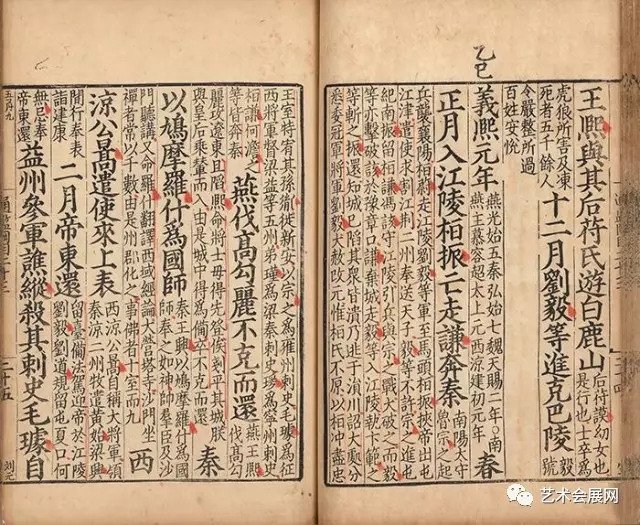 王熙與其后苻氏遊白鹿山
后苻謨幼女也
是行也士卒爲
虎狼所害及凍
死者五千餘人
十二月劉毅等進克巴陵
毅
號
令嚴整所過
百姓安悅
乙巳
義熙元年
燕光始五秦弘始七魏天賜二年○南
燕主慕容超太上元西涼建初元年
春
正月入江陵桓振亡走謙奔秦
南陽太守
魯宗之起
兵襲襄陽桓蔚走江陵劉毅等軍至馬頭桓振挾帝出屯
江津遣使求割江荊二州奉送天子毅等不許宗之進屯
紀南振留桓謙馮該守江陵引兵與宗之戰大破之而毅
等亦擊破該於豫章口謙棄城走毅等入江陵執卞範之
等斬之振還知城已陷其眾皆潰乃逃于溳川詔大處分
悉委冠軍將軍劉毅大赦改元惟桓氏不原以桓沖盡忠
王室特宥其孫胤徙新安以宗之爲雍州刺史毛璩爲征
西將軍督梁益等五州弟瑾爲梁秦刺史瑗爲寧州刺史
桓謙何澹之
等皆奔秦
燕伐高勾麗不克而還
燕王熙
伐高勾
麗攻遼東且陷熙命將士毋得先登俟剗平其城朕
與皇后乘輦而入由是城中得爲備卒不克而還
秦
以鳩摩羅什爲國師
秦王興以鳩摩羅什爲國
師奉之如神帥羣臣及沙
門聽講又命羅什翻譯西域經論大營塔寺沙門坐
禪者常以千數由是州郡化之事佛者十室而九
西
涼公暠遣使來上表
西涼公暠自稱大將軍領
秦涼二州牧遣黃始梁興
間行奉表
詣建康
二月帝東還
留臺備法駕迎帝於江陵
劉毅劉道規留屯夏口何
無忌奉
帝東還
益州參軍譙縱殺其刺史毛璩自
二十五
艺术会展网